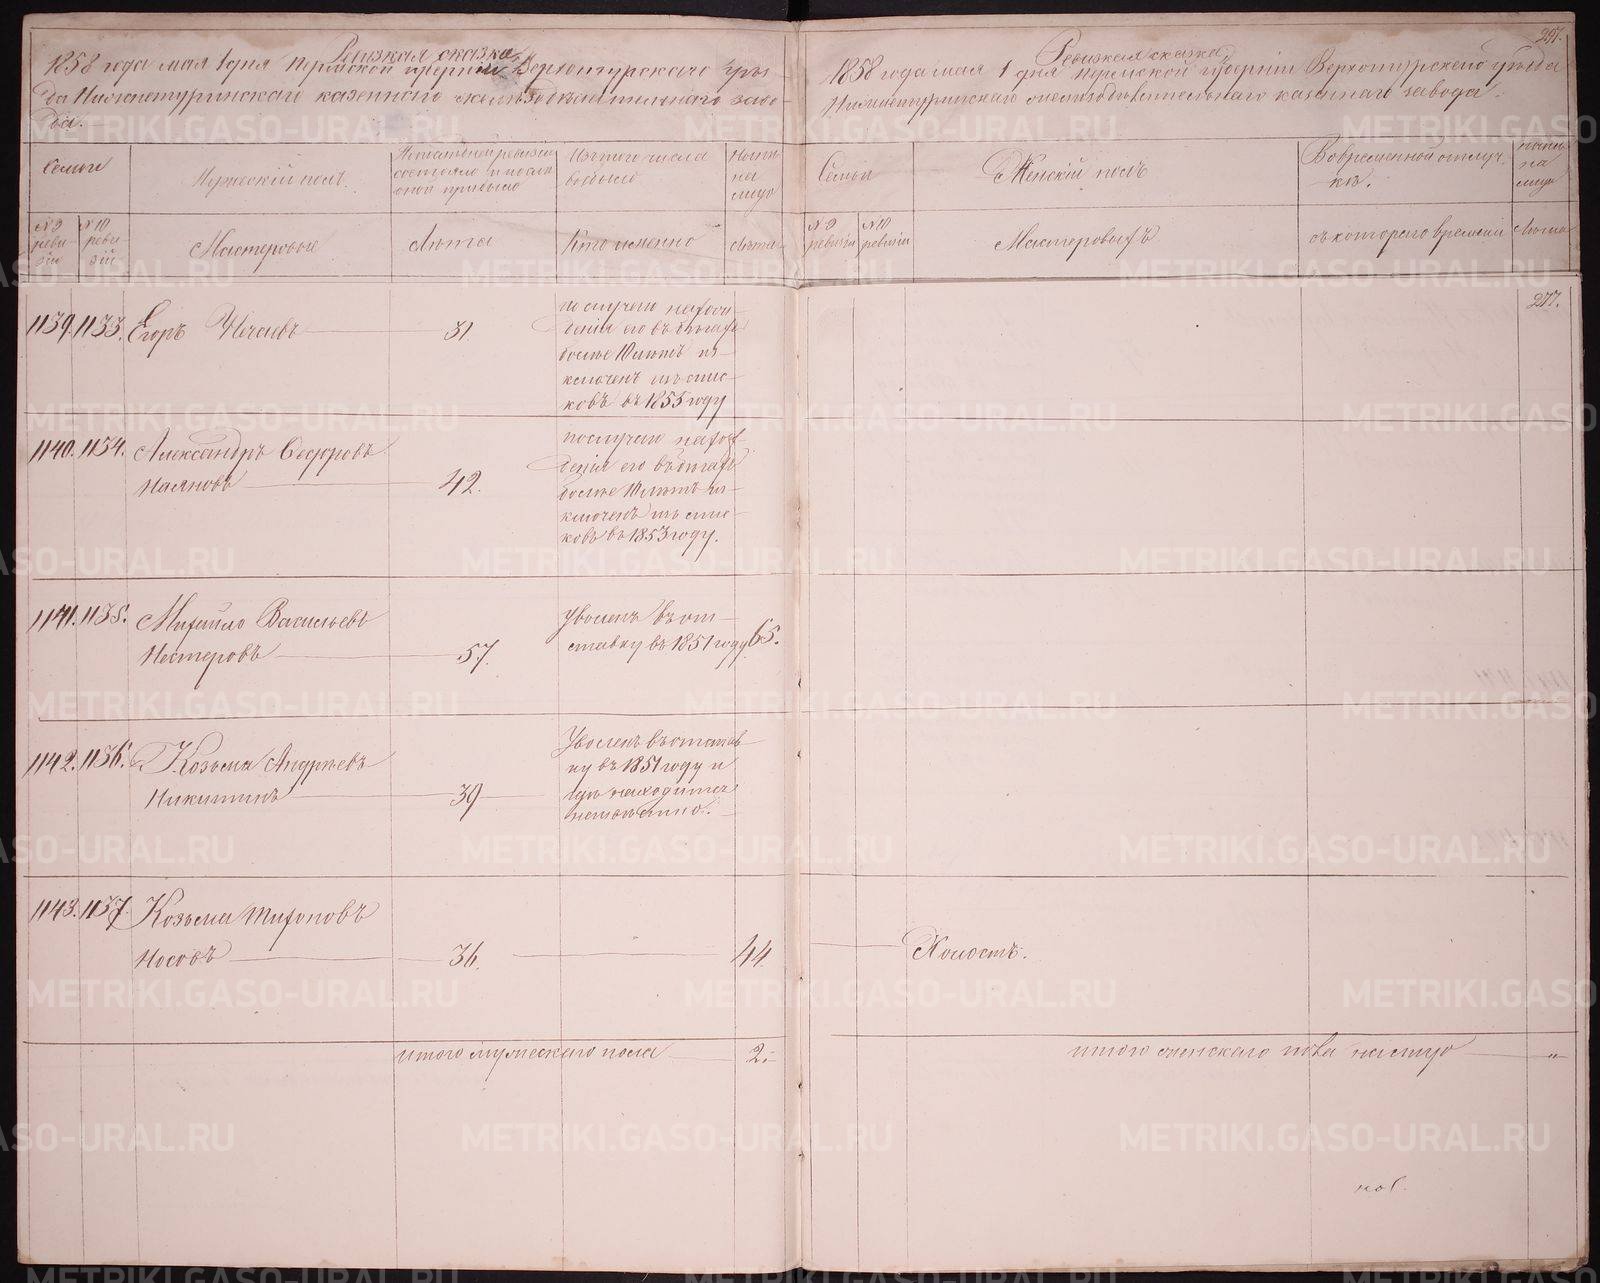 Ревизкая сказка
1858 года мая 1 дня Пермской губернии Верхотурского уѣз-
да Нижнетуринскаго казеннаго желѣзодѣлательнаго заво-
да.
Семьи
Мужескій полъ.
По последней ревизіи
состояло и после
оной прибыло
Изъ того числа
выбыло
Ныне
на
лицо
№ 9
реви-
зіи
№ 10
реви-
зіи
Мастеровые
Лѣта
Кто именно
Лѣта
1139. 1133. Егоръ Нечаевъ 31.
по случаю нахож-
денія его въ бѣгахъ
более 10 лѣтъ ис-
ключенъ изъ спис-
ковъ въ 1855 году
1140. 1134. Александръ Федоровъ
Наяновъ 42.
по случаю нахож-
денія его въ бѣгахъ
более 10 лѣтъ ис-
ключенъ изъ спис-
ковъ въ 1853 году.
1141. 1135. Михайло Васильевъ
Нестеровъ 57.
Уволенъ въ от-
ставку въ 1851 году 65.
1142. 1136. Козьма Андреевъ
Никитинъ 39
Уволенъ въ отстав-
ку въ 1851 году и
где находится
неизвестно.
1143. 1137. Козьма Тихоновъ
Носовъ 36. 44
итого мужескаго пола 2.
297.
Ревизкая сказка
1858 года мая 1 дня Пермской губерніи Верхотурскаго уѣзда
Нижнетуринскаго желѣзодѣлательнаго казеннаго завода.
Семьи
Женскій полъ
Во временной отлуч-
ке.
Ныне
на
лицо
№ 9
ревизіи
№ 10
ревизіи
Мастеровыхъ
съ котораго времени
Лѣта
277.
Холостъ.
итого женскаго пола на лицо "
METRIKI.GASO-URAL.RU